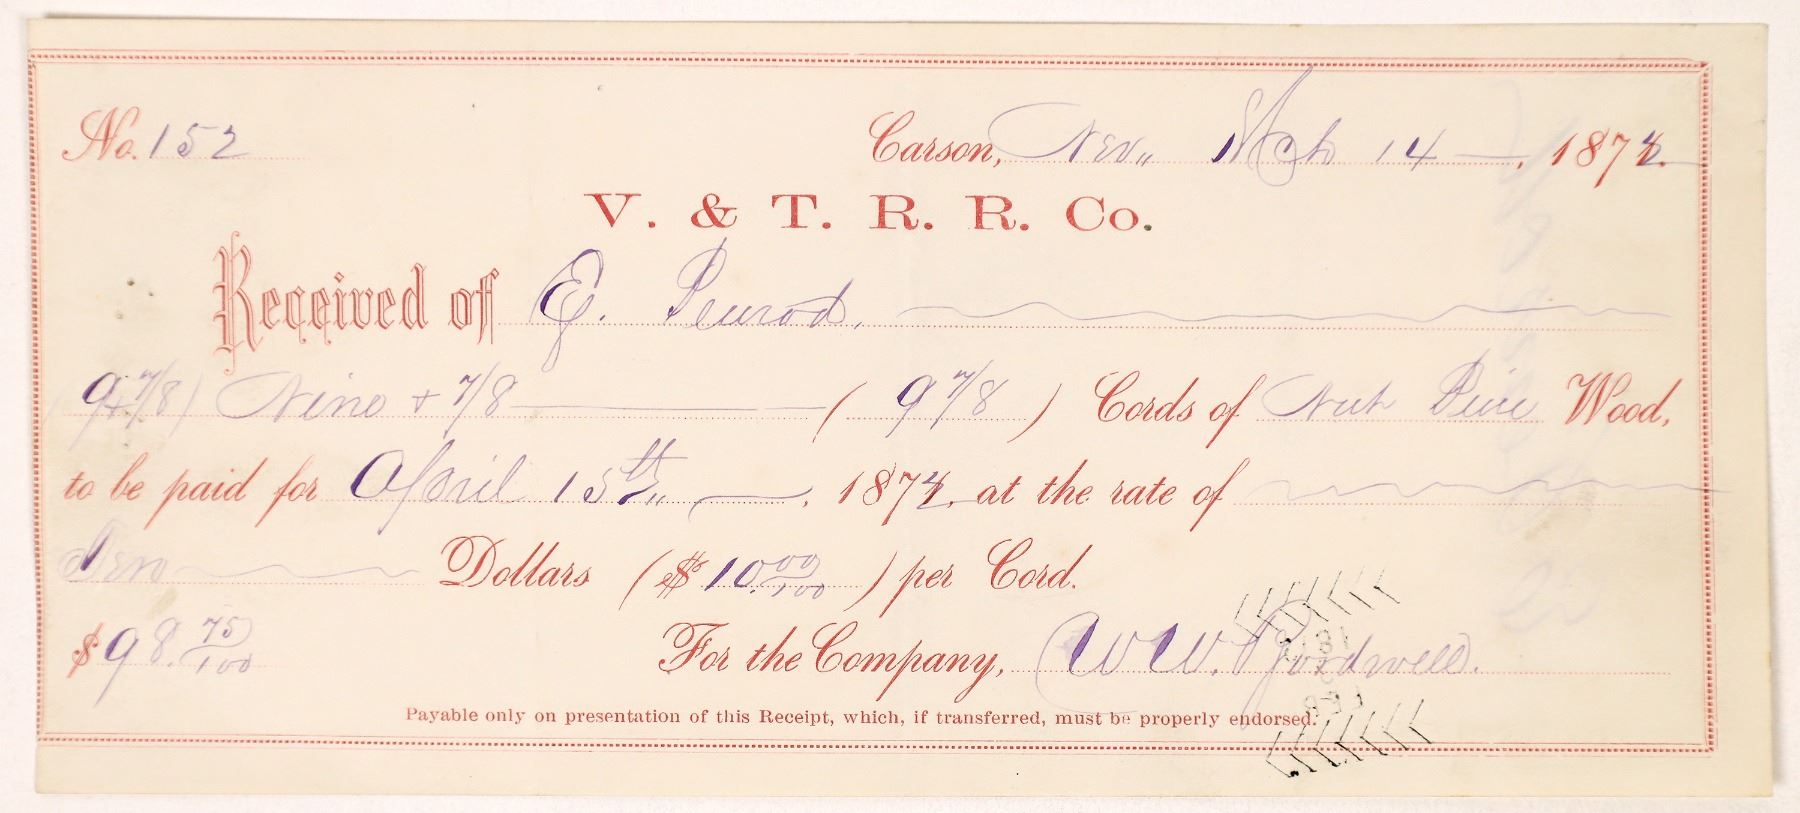 No. 152 Carson, Nev., Mch 14 1872.
V. & T. R. R. Co.
Received of E. Penrod.
(9 7/8) Nine + 7/8 ( 9 7/8 ) Cords of Nut Pine Wood,
to be paid for April 15th, 1872. at the rate of
Ten Dollars ($ 10. 00/100 ) per Cord.
$ 98. 75/100 For the Company, W W. Bordwell.
Payable only on presentation of this Receipt, which, if transferred, must be properly endorsed.